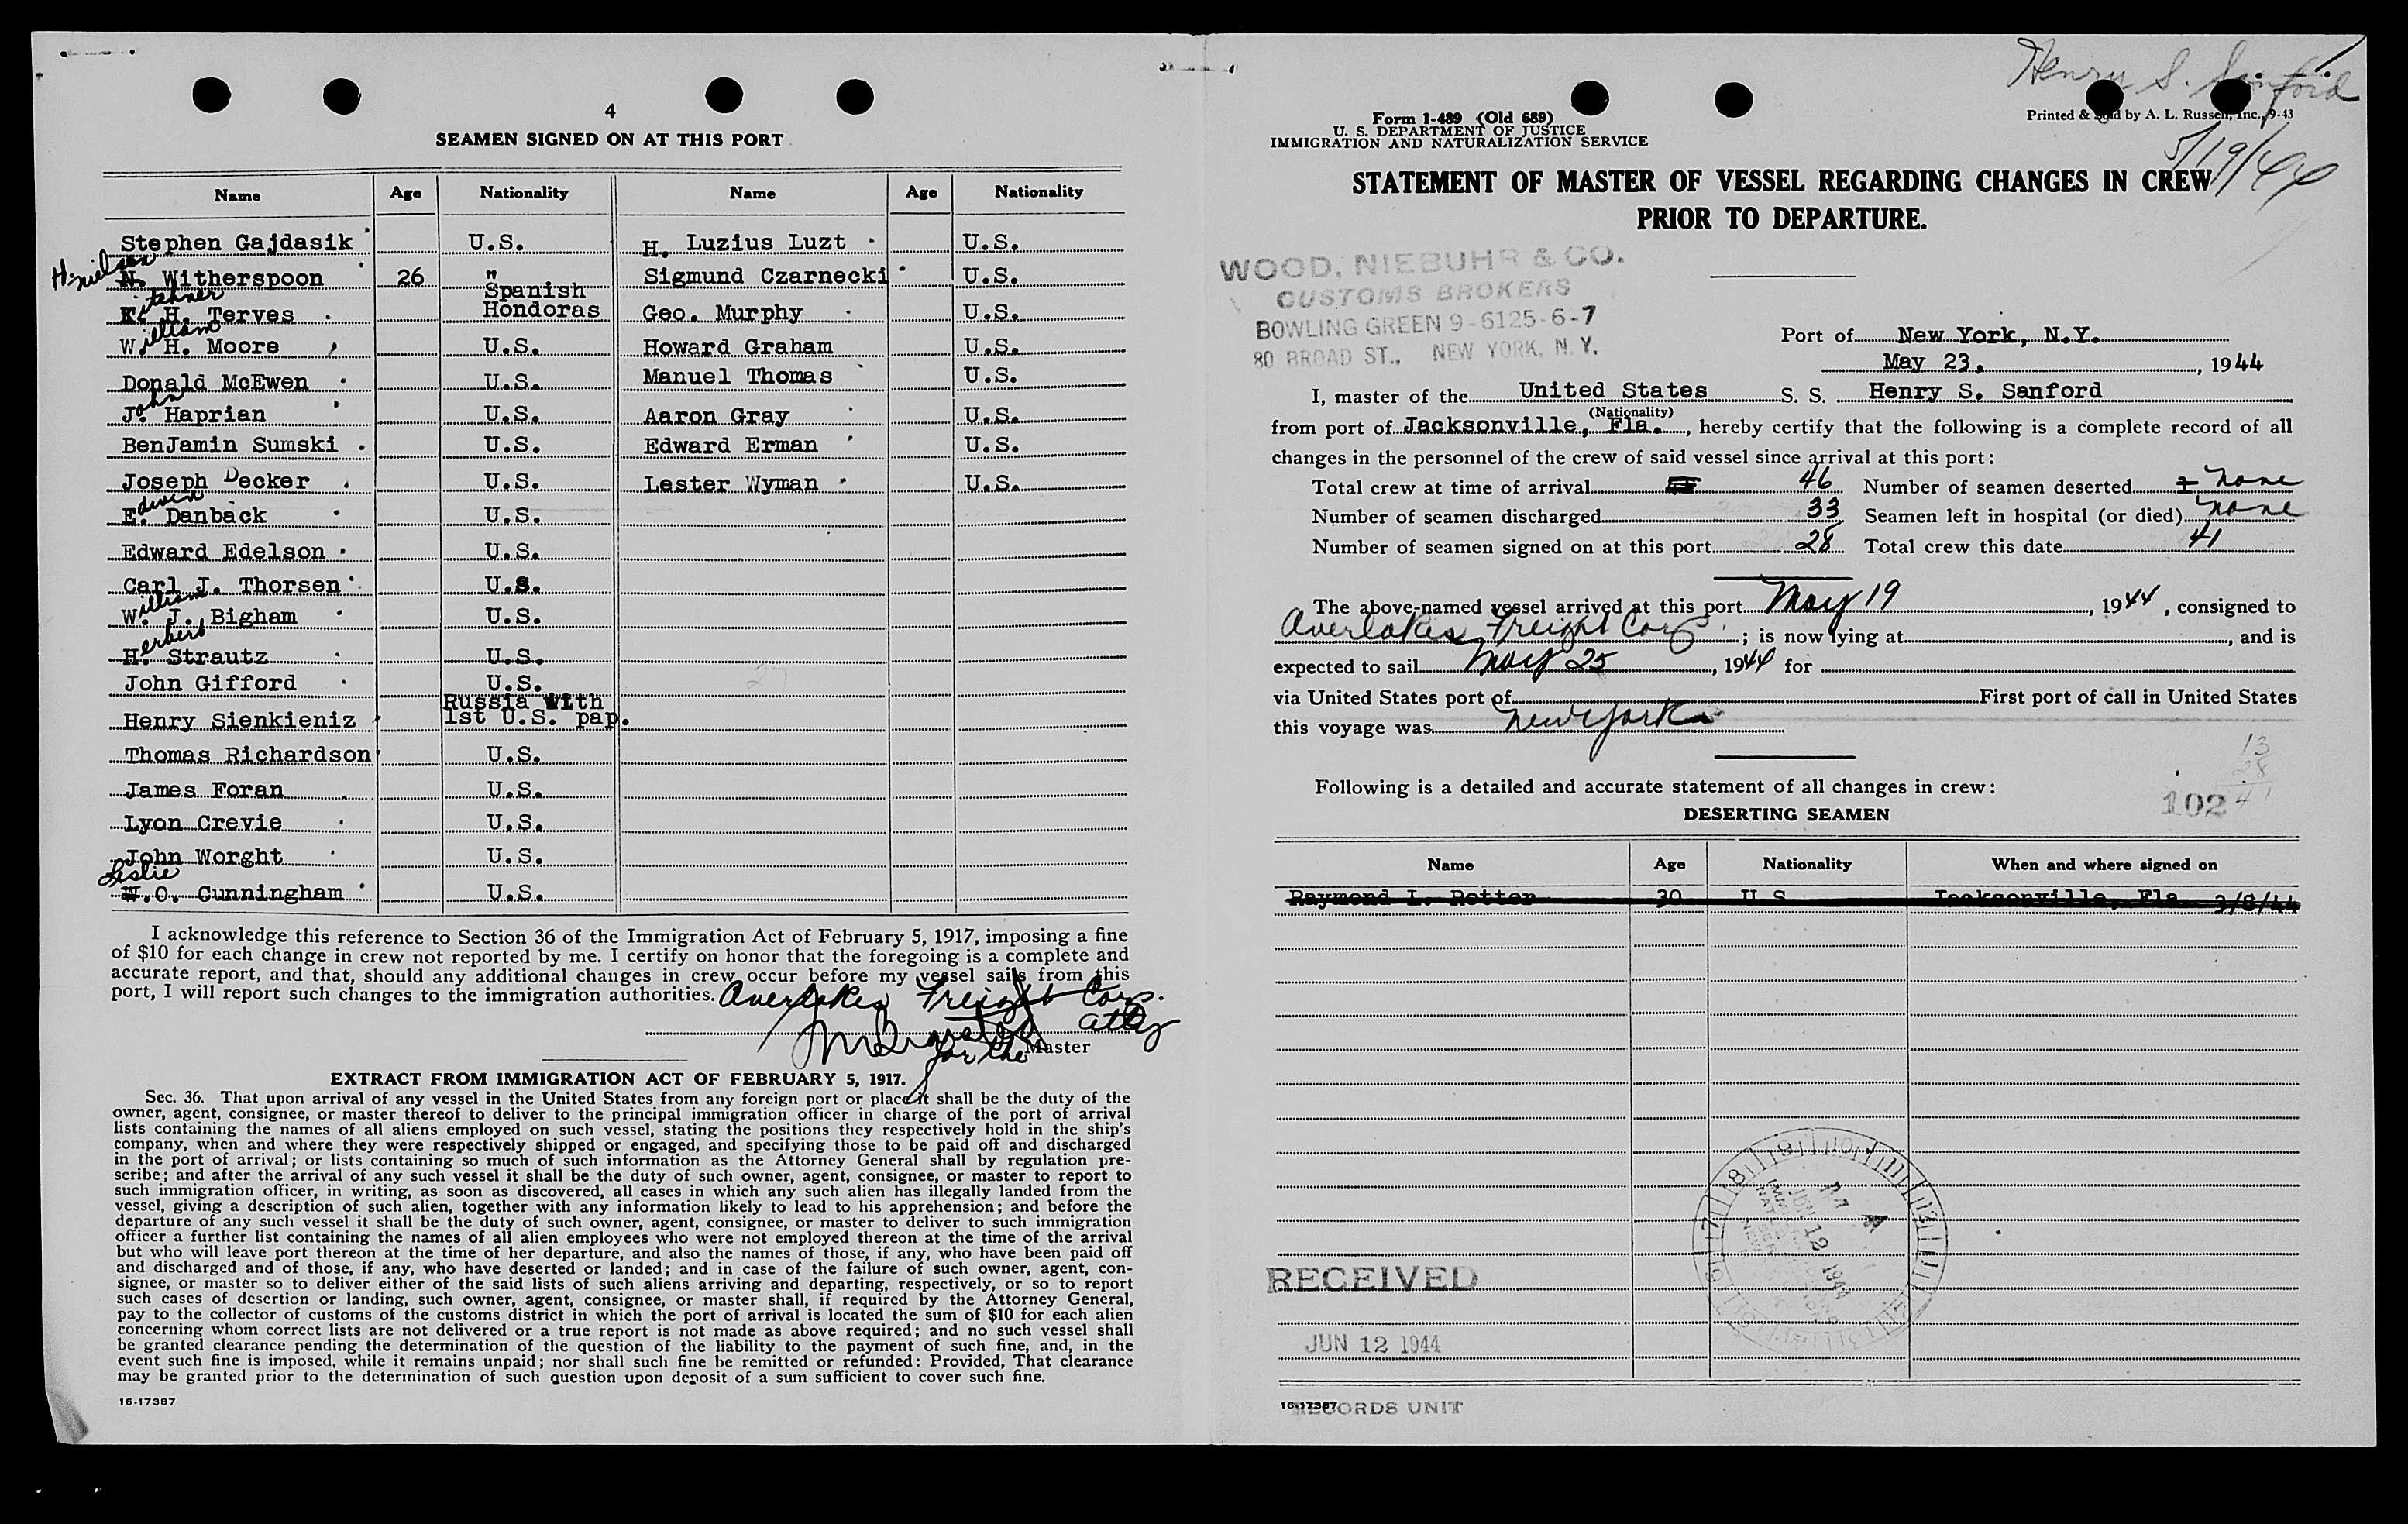 4
SEAMEN SIGNED ON AT THIS PORT
Name Age Nationality Name Age Nationality
Stephen Gajdasik U.S. H. Luzius Luzt U.S.
H. Nielsen
N. Witherspoon 26 " Sigmund Czarnecki U.S.
K. H. Terves Spanish Hondoras Geo. Murphy U.S.
William
W. H. Moore U.S. Howard Graham U.S.
Donald McEwen U.S. Manuel Thomas U.S.
John
J. Haprian U.S. Aaron Gray U.S.
BenJamin Sumski U.S. Edward Erman U.S.
Joseph Decker U.S. Lester Wyman U.S.
Edwin
E. Danback U.S.
Edward Edelson U.S.
Carl J. Thorsen U.S.
William
W. J. Bigham U.S.
Herbert
H. Strautz U.S.
John Gifford U.S.
Henry Sienkieniz Russia with 1st U.S. pap.
Thomas Richardson U.S.
James Foran U.S.
Lyon Crevie U.S.
John Worght U.S.
Leslie
W.O. Cunningham U.S.
27
I acknowledge this reference to Section 36 of the Immigration Act of February 5, 1917, imposing a fine
of $10 for each change in crew not reported by me. I certify on honor that the foregoing is a complete and
accurate report, and that, should any additional changes in crew occur before my vessel sails from this
port, I will report such changes to the immigration authorities. Overlakes Freight Corp.
atty
for the Master
EXTRACT FROM IMMIGRATION ACT OF FEBRUARY 5, 1917.
Sec. 36. That upon arrival of any vessel in the United States from any foreign port or place it shall be the duty of the
owner, agent, consignee, or master thereof to deliver to the principal immigration officer in charge of the port of arrival
lists containing the names of all aliens employed on such vessel, stating the positions they respectively hold in the ship's
company, when and where they were respectively shipped or engaged, and specifying those to be paid off and discharged
in the port of arrival; or lists containing so much of such information as the Attorney General shall by regulation pre-
scribe; and after the arrival of any such vessel it shall be the duty of such owner, agent, consignee, or master to report to
such immigration officer, in writing, as soon as discovered, all cases in which any such alien has illegally landed from the
vessel, giving a description of such alien, together with any information likely to lead to his apprehension; and before the
departure of any such vessel it shall be the duty of such owner, agent, consignee, or master to deliver to such immigration
officer a further list containing the names of all alien employees who were not employed thereon at the time of the arrival
but who will leave port thereon at the time of her departure, and also the names of those, if any, who have been paid off
and discharged and of those, if any, who have deserted or landed; and in case of the failure of such owner, agent, con-
signee, or master so to deliver either of the said lists of such aliens arriving and departing, respectively, or so to report
such cases of desertion or landing, such owner, agent, consignee, or master shall, if required by the Attorney General,
pay to the collector of customs of the customs district in which the port of arrival is located the sum of $10 for each alien
concerning whom correct lists are not delivered or a true report is not made as above required; and no such vessel shall
be granted clearance pending the determination of the question of the liability to the payment of such fine, and, in the
event such fine is imposed, while it remains unpaid; nor shall such fine be remitted or refunded: Provided, That clearance
may be granted prior to the determination of such question upon deposit of a sum sufficient to cover such fine.
16-17387
Henry S. Sanford
5/19/44
Form 1-489 (Old 689)
U. S. DEPARTMENT OF JUSTICE
IMMIGRATION AND NATURALIZATION SERVICE
Printed & Sold by A. L. Russell, Inc., 9-43
STATEMENT OF MASTER OF VESSEL REGARDING CHANGES IN CREW
PRIOR TO DEPARTURE.
WOOD, NIEBUHR & CO.
CUSTOMS BROKERS
BOWLING GREEN 9-6125-6-7
80 BROAD ST., NEW YORK, N. Y.
Port of New York, N.Y.
May 23, 1944
I, master of the United States S. S. Henry S. Sanford
(Nationality)
from port of Jacksonville, Fla., hereby certify that the following is a complete record of all
changes in the personnel of the crew of said vessel since arrival at this port:
Total crew at time of arrival 46 Number of seamen deserted 1 None
Number of seamen discharged 33 Seamen left in hospital (or died) None
Number of seamen signed on at this port 28 Total crew this date 41
The above-named vessel arrived at this port May 19, 1944, consigned to
Overlakes Freight Corp.; is now lying at , and is
expected to sail May 25, 1944 for
via United States port of First port of call in United States
this voyage was New York
13
28
41
Following is a detailed and accurate statement of all changes in crew:
102
DESERTING SEAMEN
Name Age Nationality When and where signed on
Raymond L. Rotter 30 U.S. Jacksonville, Fla. 3/8/44
RECEIVED
JUN 12 1944
RECORDS UNIT
16-17387
JUN 12 1944